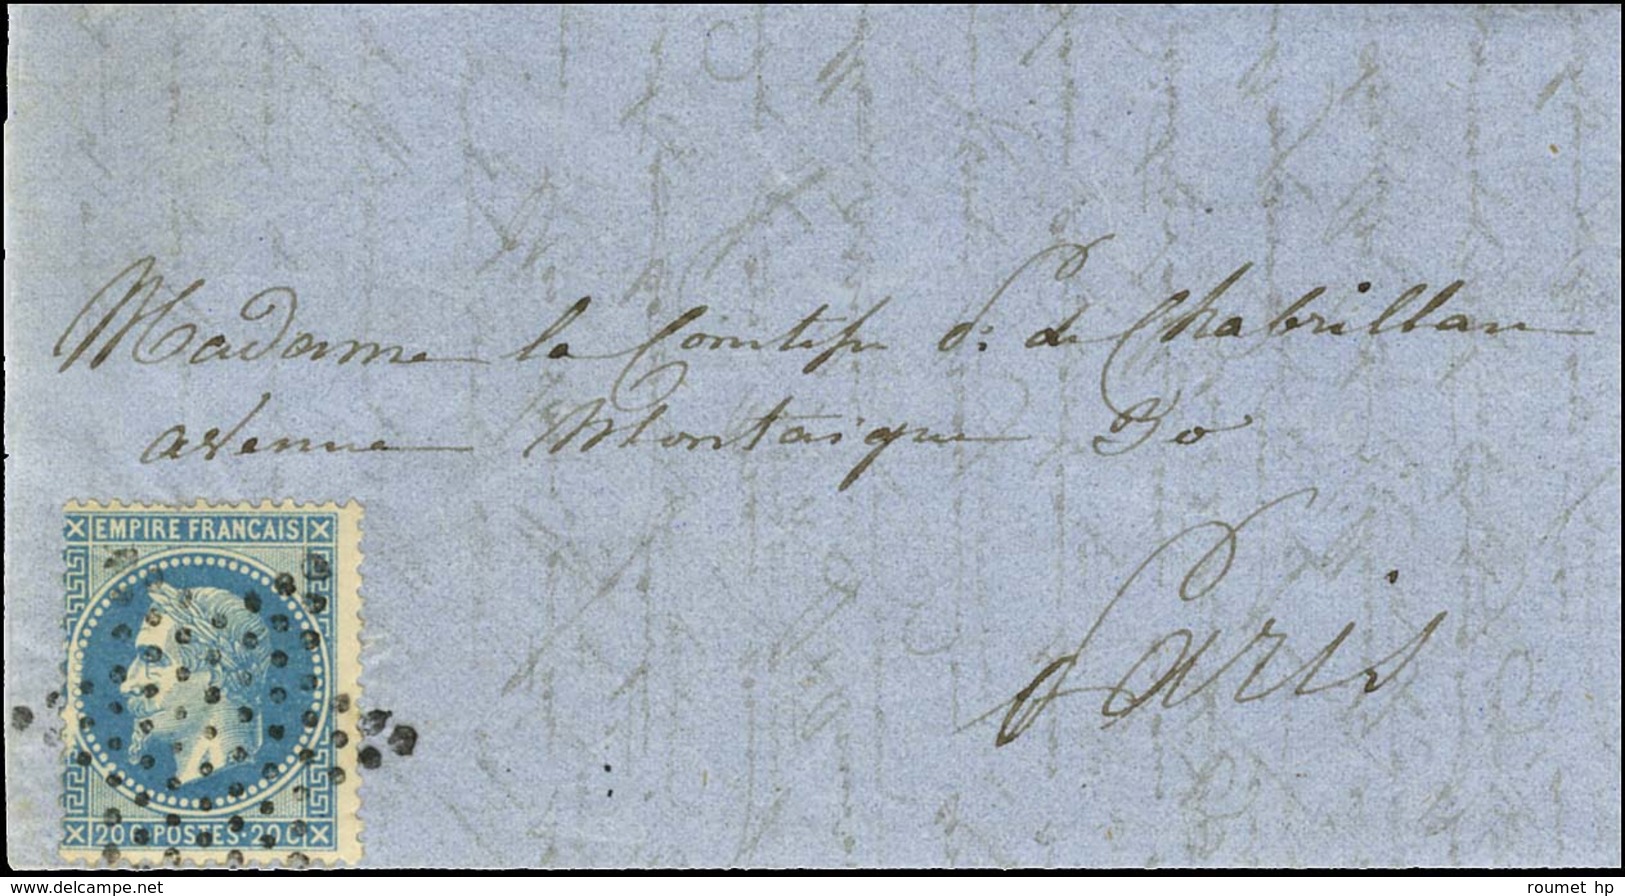 Madame la Comtesse P. de Chabrillan
avenue Montaigne 30
Paris
EMPIRE FRANCAIS
20 C POSTES 20 C
www.delcampe.net
roumet hp